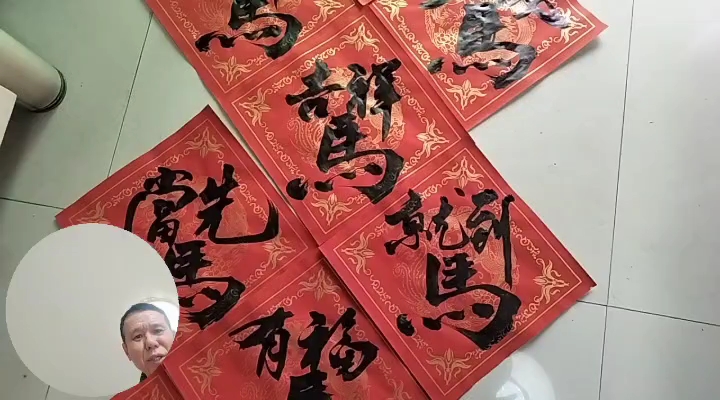 馬
吉祥
馬
當先
馬
就到
馬
有福